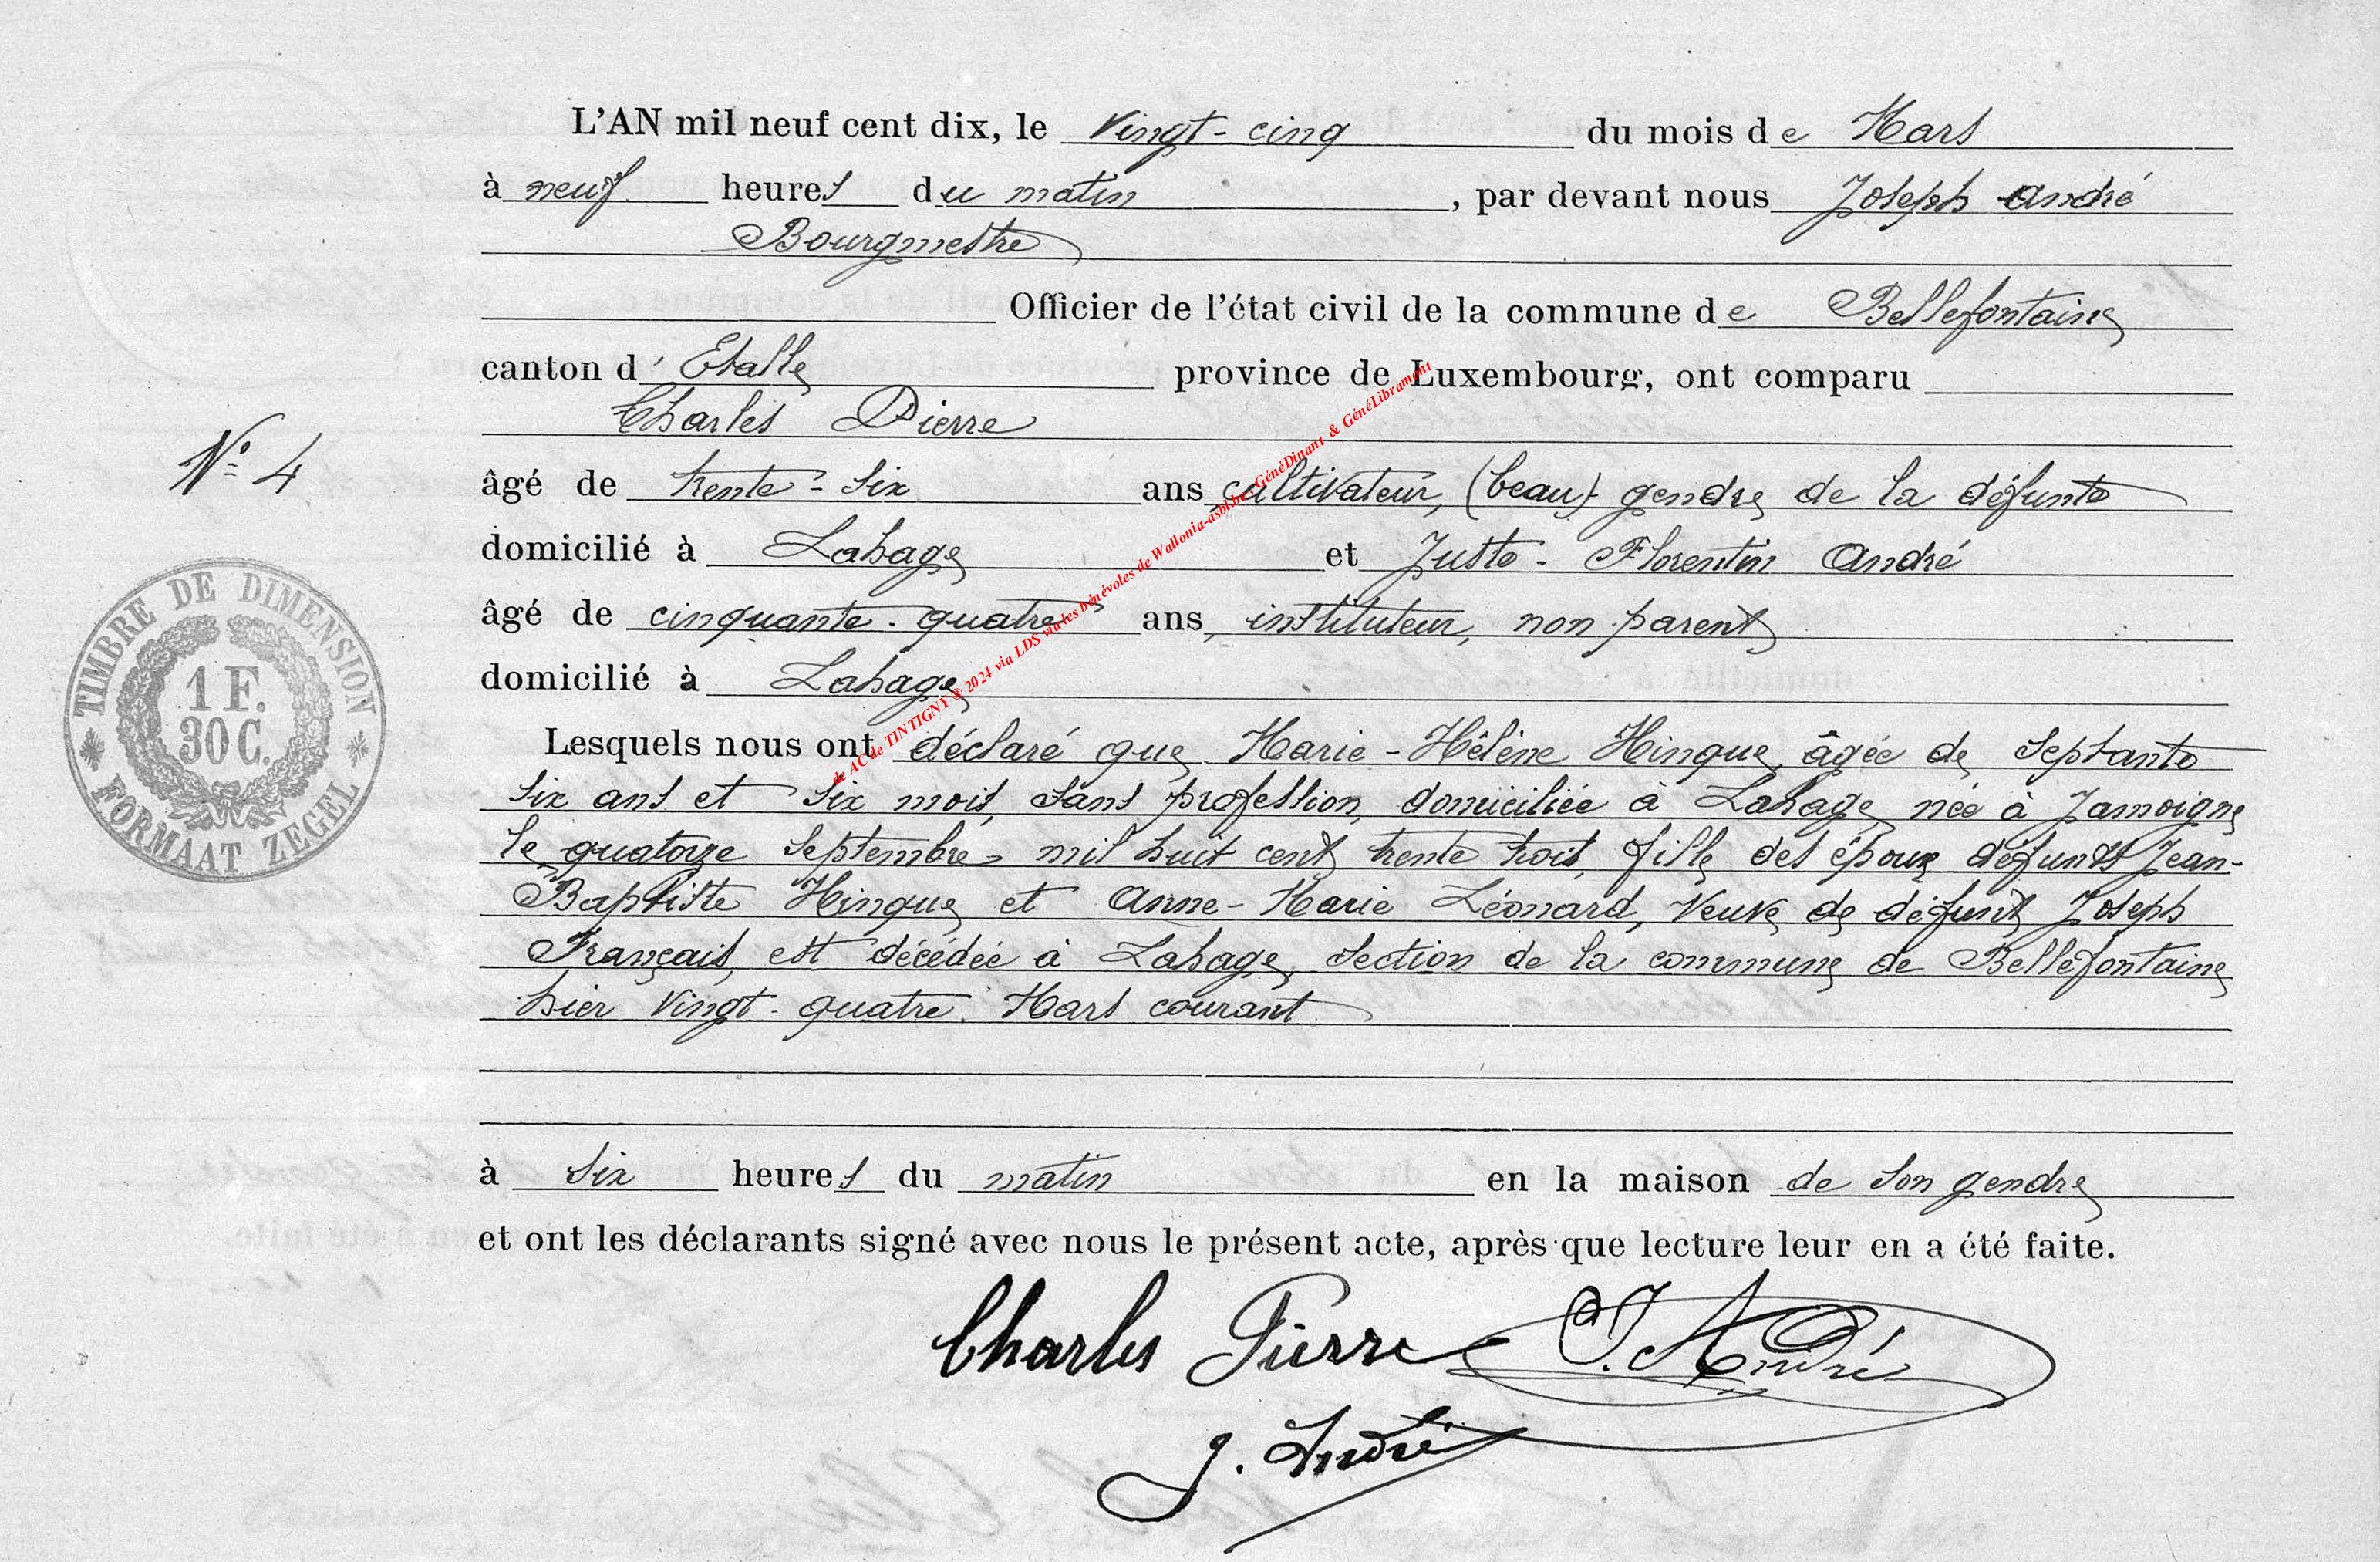 L'AN mil neuf cent dix, le Vingt-cinq du mois de Mars
à neuf heures du matin, par devant nous Joseph André
Bourgmestre
Officier de l'état civil de la commune de Bellefontaine
canton d'Etalle province de Luxembourg, ont comparu
Charles Pierre
N° 4
âgé de trente-six ans, cultivateur, (beau) gendre de la défunte
domicilié à Lahage et Juste-Florentin André
âgé de cinquante-quatre ans, instituteur, non parent
domicilié à Lahage
TIMBRE DE DIMENSION
1 F.
30 C.
FORMAAT ZEGEL
Lesquels nous ont déclaré que Marie-Hélène Hinque, âgée de septante
six ans et six mois, sans profession, domiciliée à Lahage, née à Jamoigne
le quatorze Septembre mil huit cent trente trois, fille des époux défunts Jean-
Baptiste Hinque et Anne-Marie Léonard, Veuve de défunt Joseph
Français, est décédée à Lahage, section de la commune de Bellefontaine
hier Vingt-quatre Mars courant
à six heures du matin en la maison de son gendre
et ont les déclarants signé avec nous le présent acte, après que lecture leur en a été faite.
Charles Pierre J. André
J. André
de AC de TINTIGNY © 2024 via LDS via les bénévoles de Wallonia-asbl.be, GénéDinant & GénéLibramont